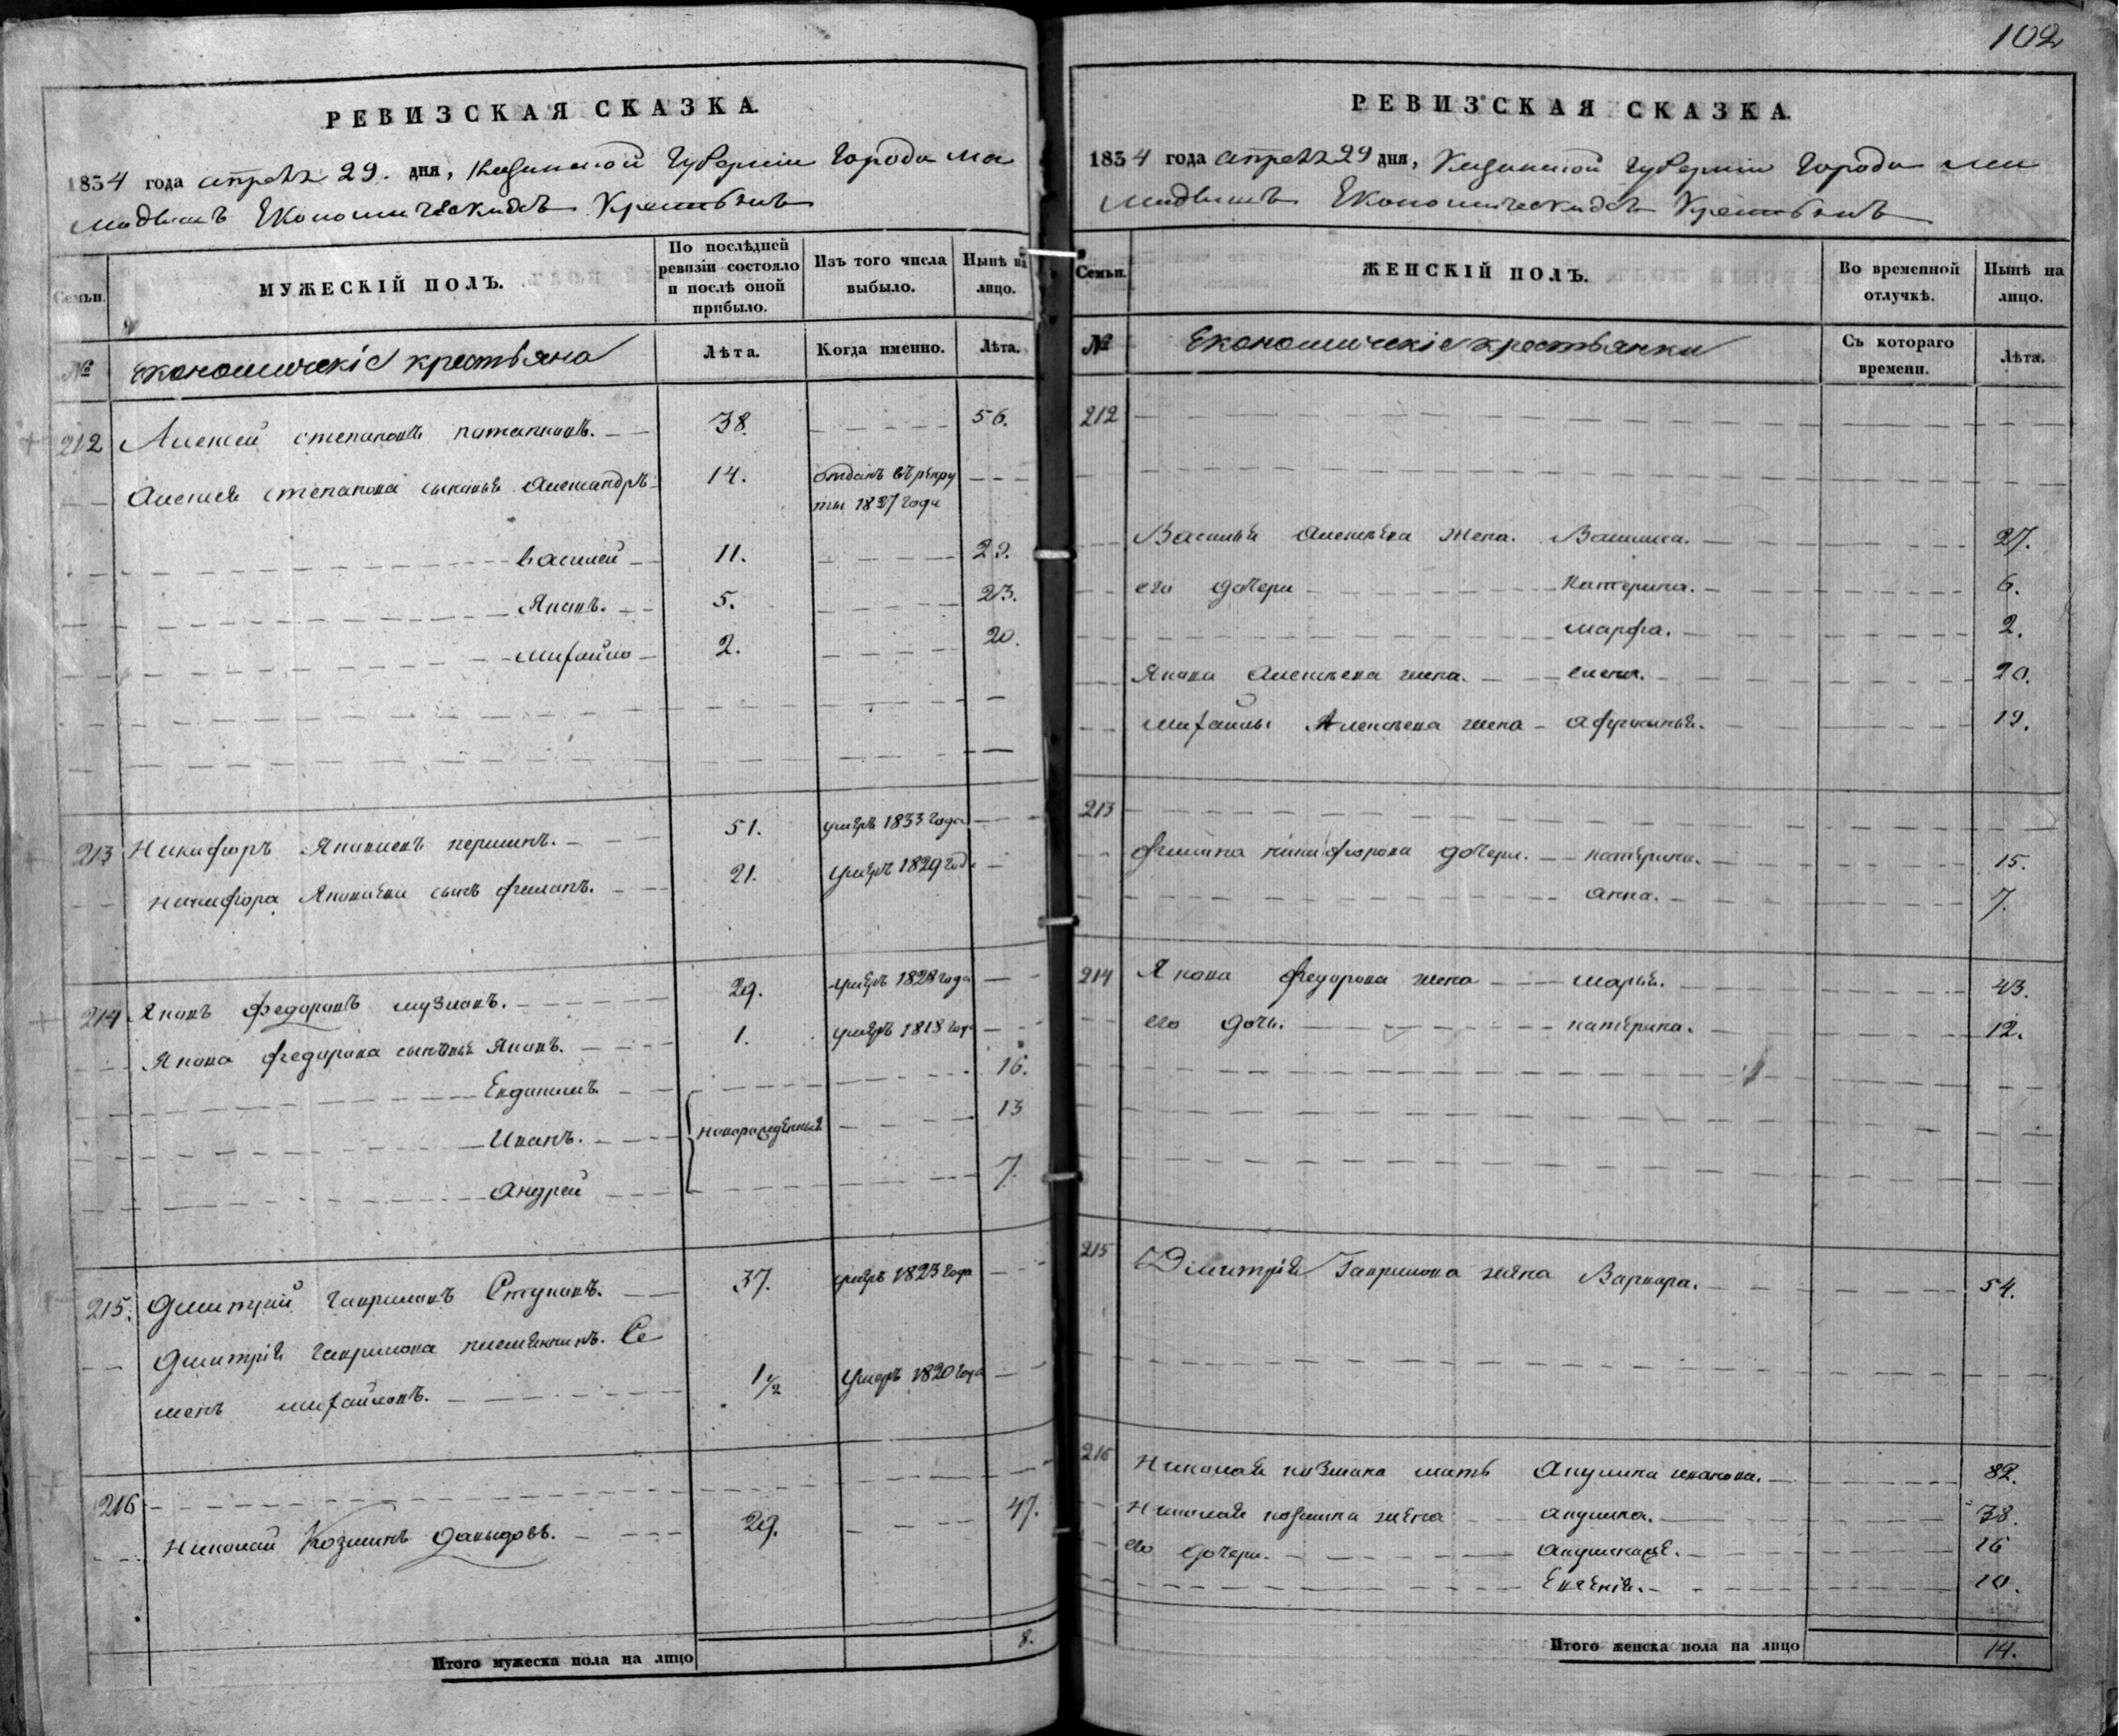 РЕВИЗСКАЯ СКАЗКА
1834 года апреля 29. дня, Казанской Губернии Города Ма
мадыша Економическихъ Крестьянъ
Семьи.
МУЖЕСКІЙ ПОЛЪ.
По послѣдней ревизіи состояло и послѣ оной прибыло.
Изъ того числа выбыло.
Нынѣ на лицо.
№
Економическіе крестьяна
Лѣта.
Когда именно.
Лѣта.
212 Алексей степановъ 38. 56.
Алексея степанова сыновья Александръ 14. отданъ въ рекру
ты 1827 года
василей 11. 29.
Яковъ. 5. 23.
михайло 2. 20.
213 Никифоръ Яковлевъ першинъ. 51. умеръ 1833 года
никифора Яковлева сынъ филипъ. 21. умеръ 1829 года
214 Яковъ федоровъ музлонъ. 29. умеръ 1828 года
Якова федорова сыновья Яковъ. 1. умеръ 1818 года
Евдокимъ 16.
Иванъ. новорожденныя 13
андрей 7.
215. дмитрий гавриловъ Ступинъ. 37. умеръ 1823 года
дмитрия гаврилова племянникъ. Се
менъ михайловъ. 1½ умеръ 1820 года
216
николай Козминъ давыдовъ. 29. 47.
Итого мужеска пола на лицо 8.
102
РЕВИЗСКАЯ СКАЗКА
1834 года апреля 29 дня, Казанской Губернии Города Ма
мадыша Економическихъ Крестьянъ
Семьи.
ЖЕНСКІЙ ПОЛЪ.
Во временной отлучкѣ.
Нынѣ на лицо.
№
Економическіе крестьянки
Съ котораго времени.
Лѣта.
212
Василья алексеева жена. Василиса. 27.
его дочери катерина. 6.
марфа. 2.
Якова алексеева жена. елена. 20.
михайлы Алексеева жена афросинья. 19.
213
филипа никифорова дочери. катерина. 15.
анна. 7.
214 Якова федорова жена марья. 43.
его дочь. катерина. 12.
215 Дмитрия Гаврилова жена Варвара. 54.
216 Николая козмина мать Акулина иванова. 82.
Николая козмина жена акулина. 38.
его дочери. 16
Евгенія. 10.
Итого женска пола на лицо 14.